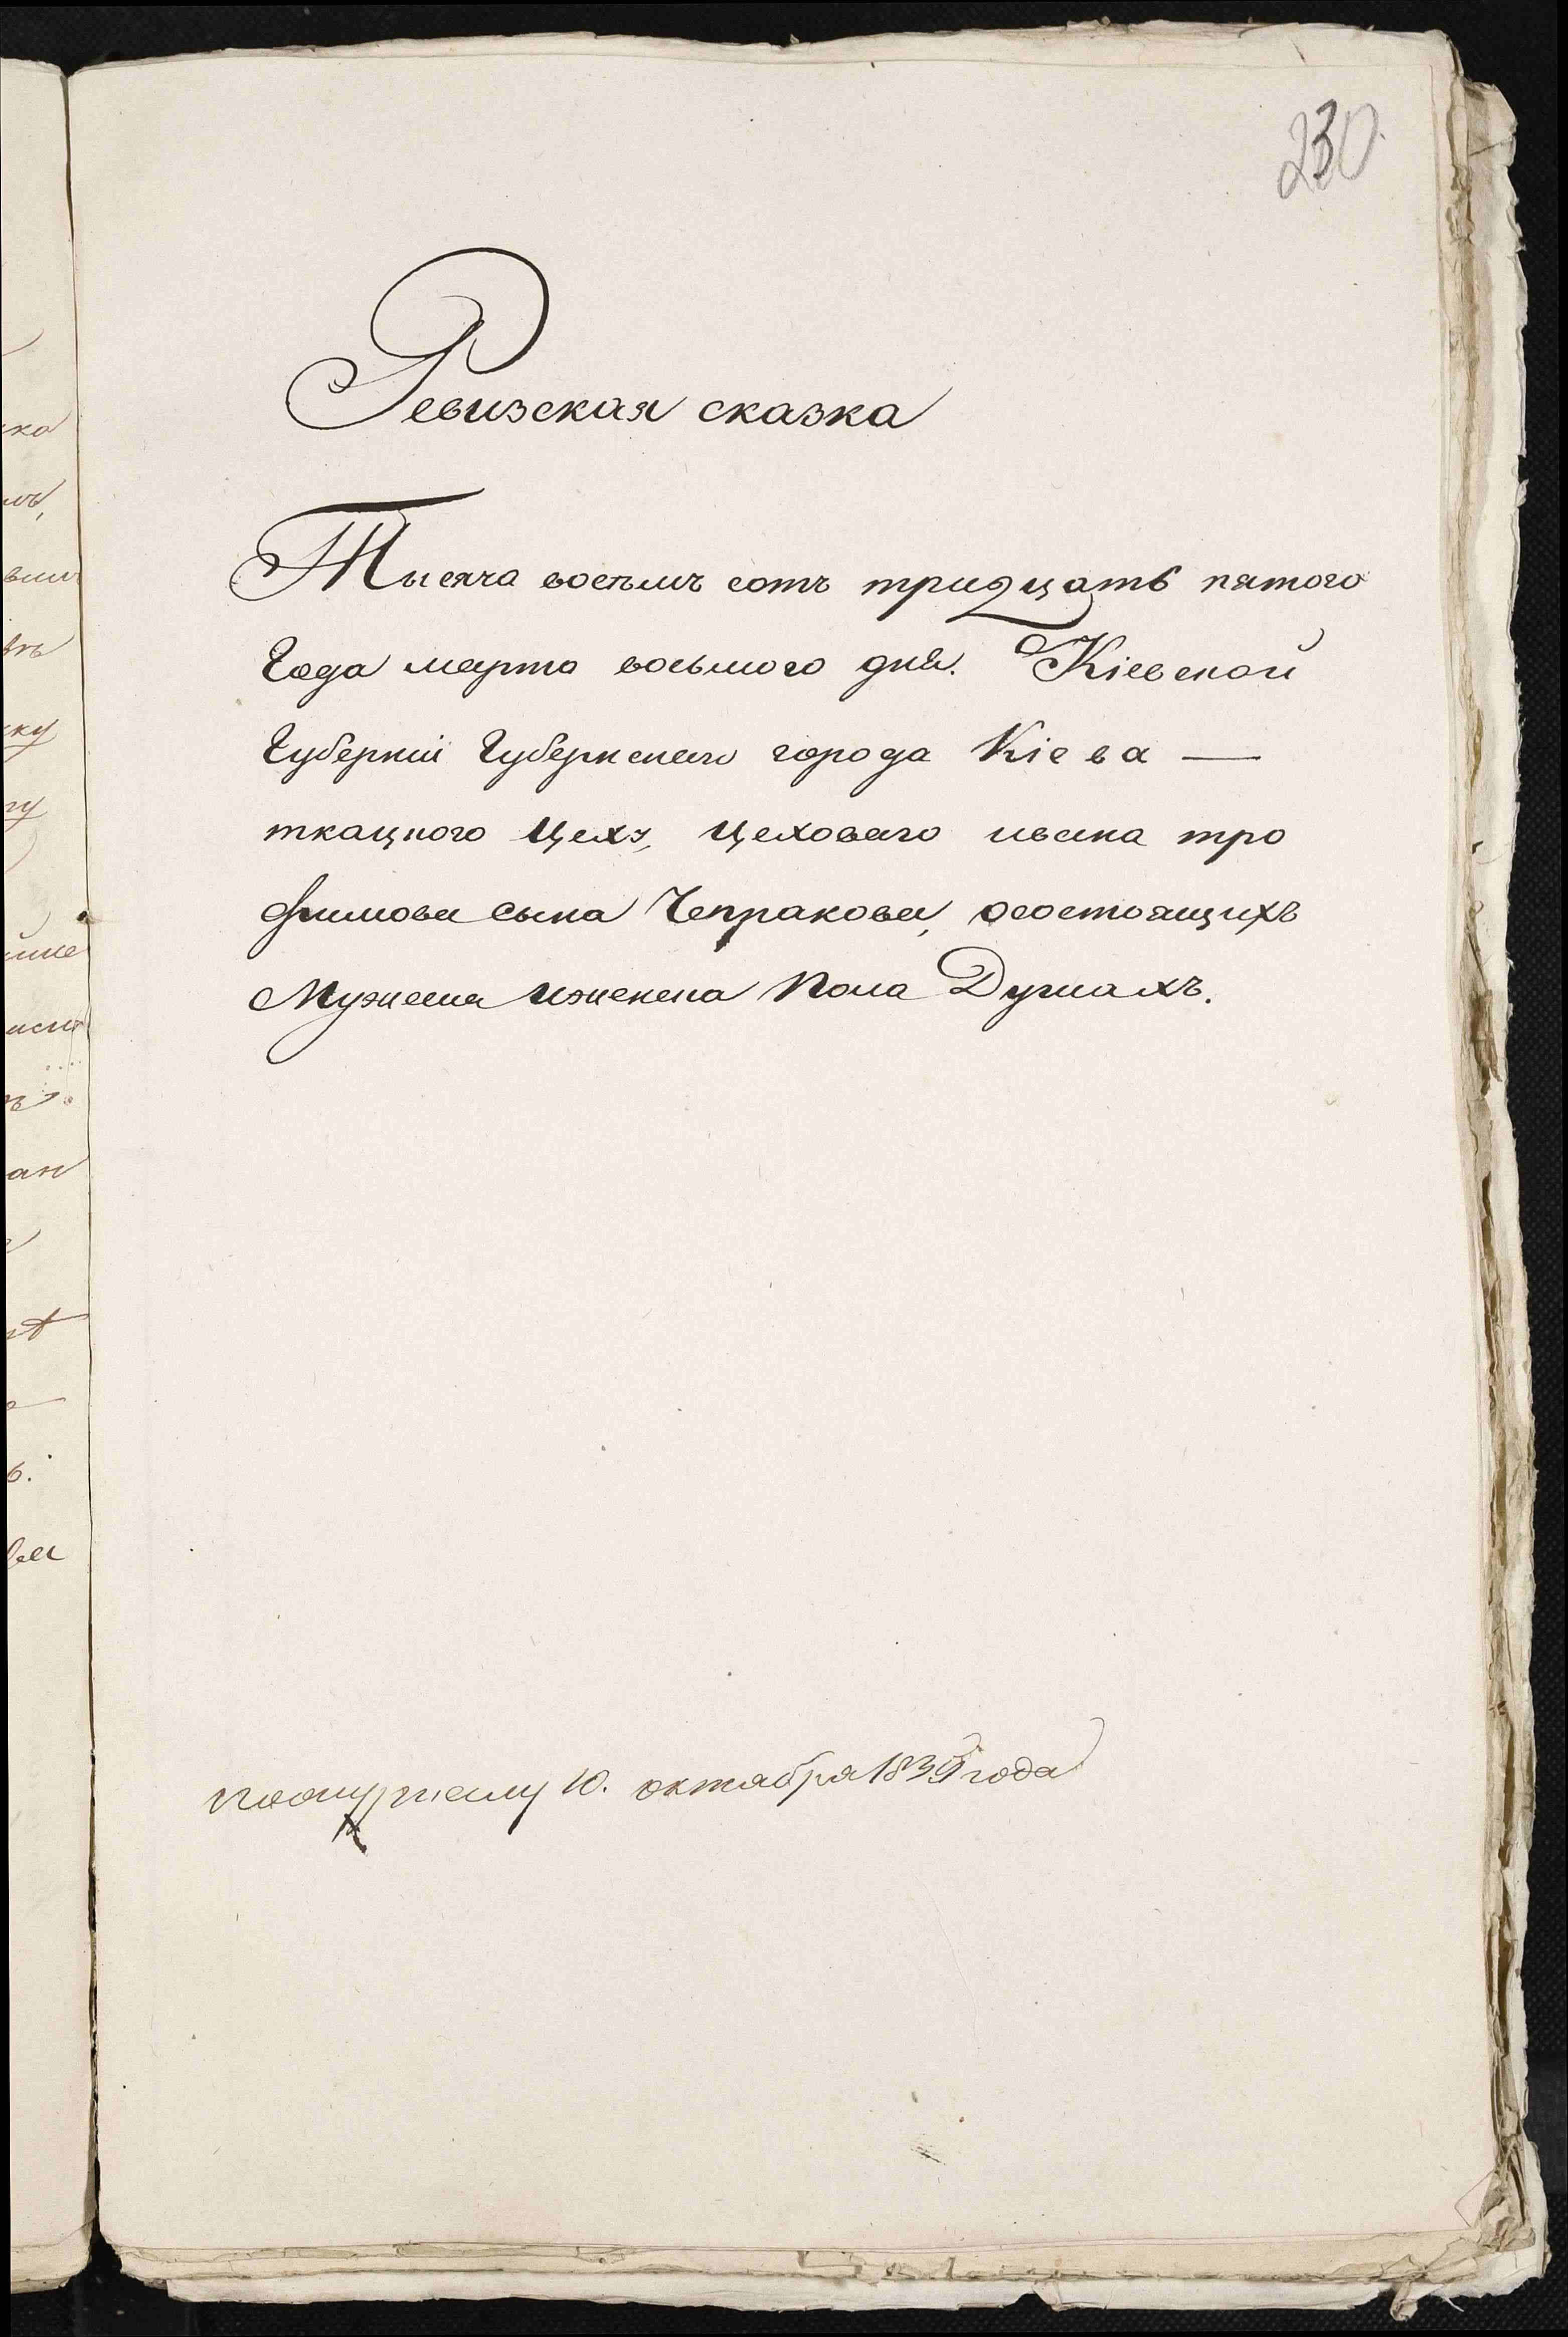 230
Ревизская сказка
Тысяча восемъ сотъ тридцать пятого
Года марта восьмого дня. Кіевской
Губерніи Губернскаго города Кіева —
ткацкого Цеху, Цеховаго ивана тро
фимова сына Чепракова, осостоящихъ
Мужеска иженска Пола Душахъ.
10. октября 1839 года